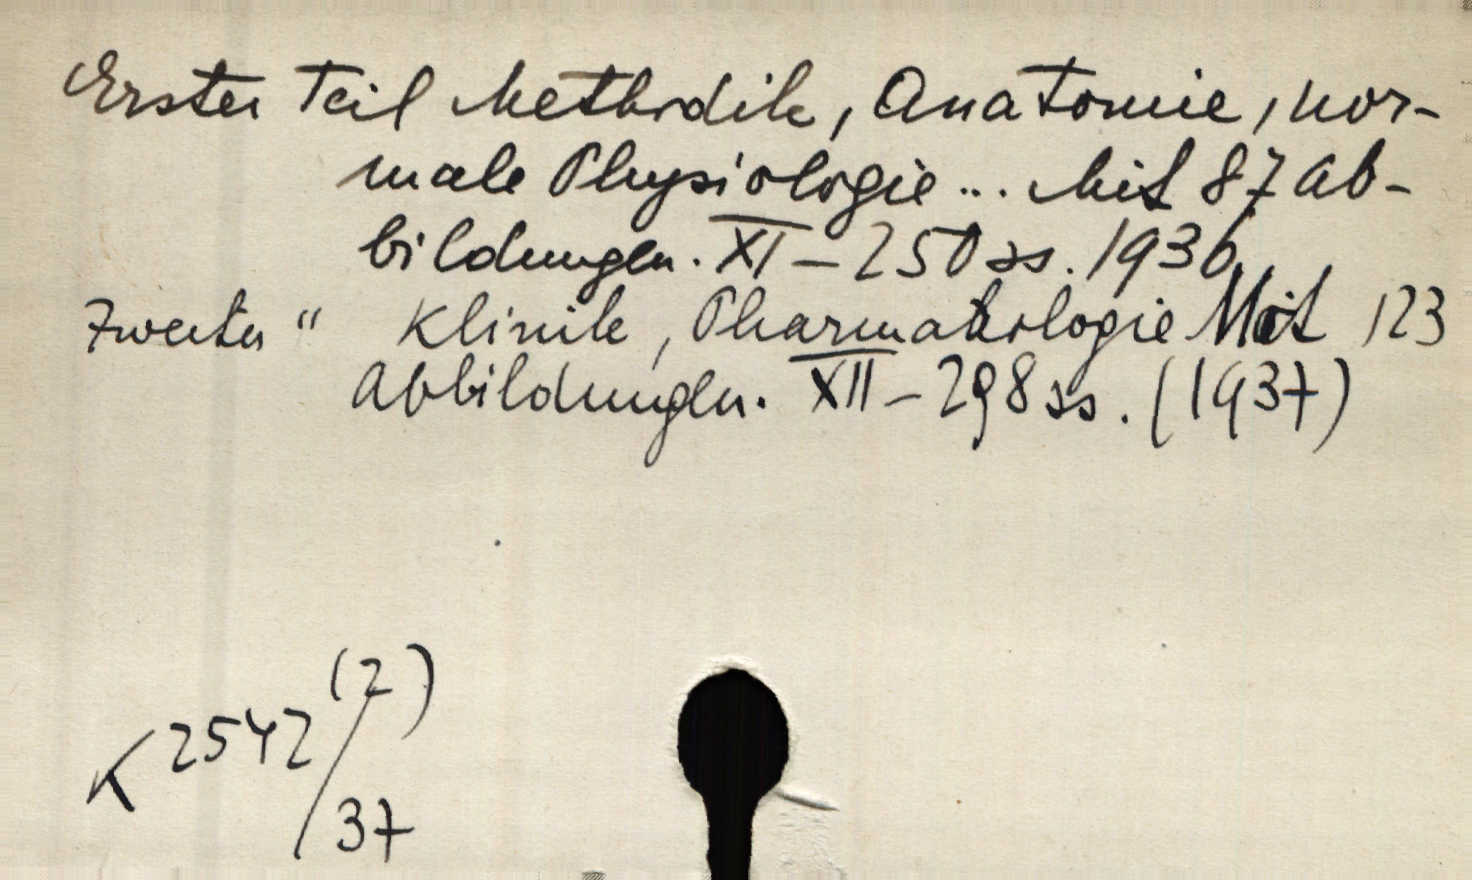 Erster Teil Methodik, Anatomie, nor-
male Physiologie... Mit 87 Ab-
bildungen. XI – 250 ss. 1936.
Zweiter " Klinik, Pharmakologie Mit 123
Abbildungen. XII – 298 ss. (1937)
(2)
K 2542/
37